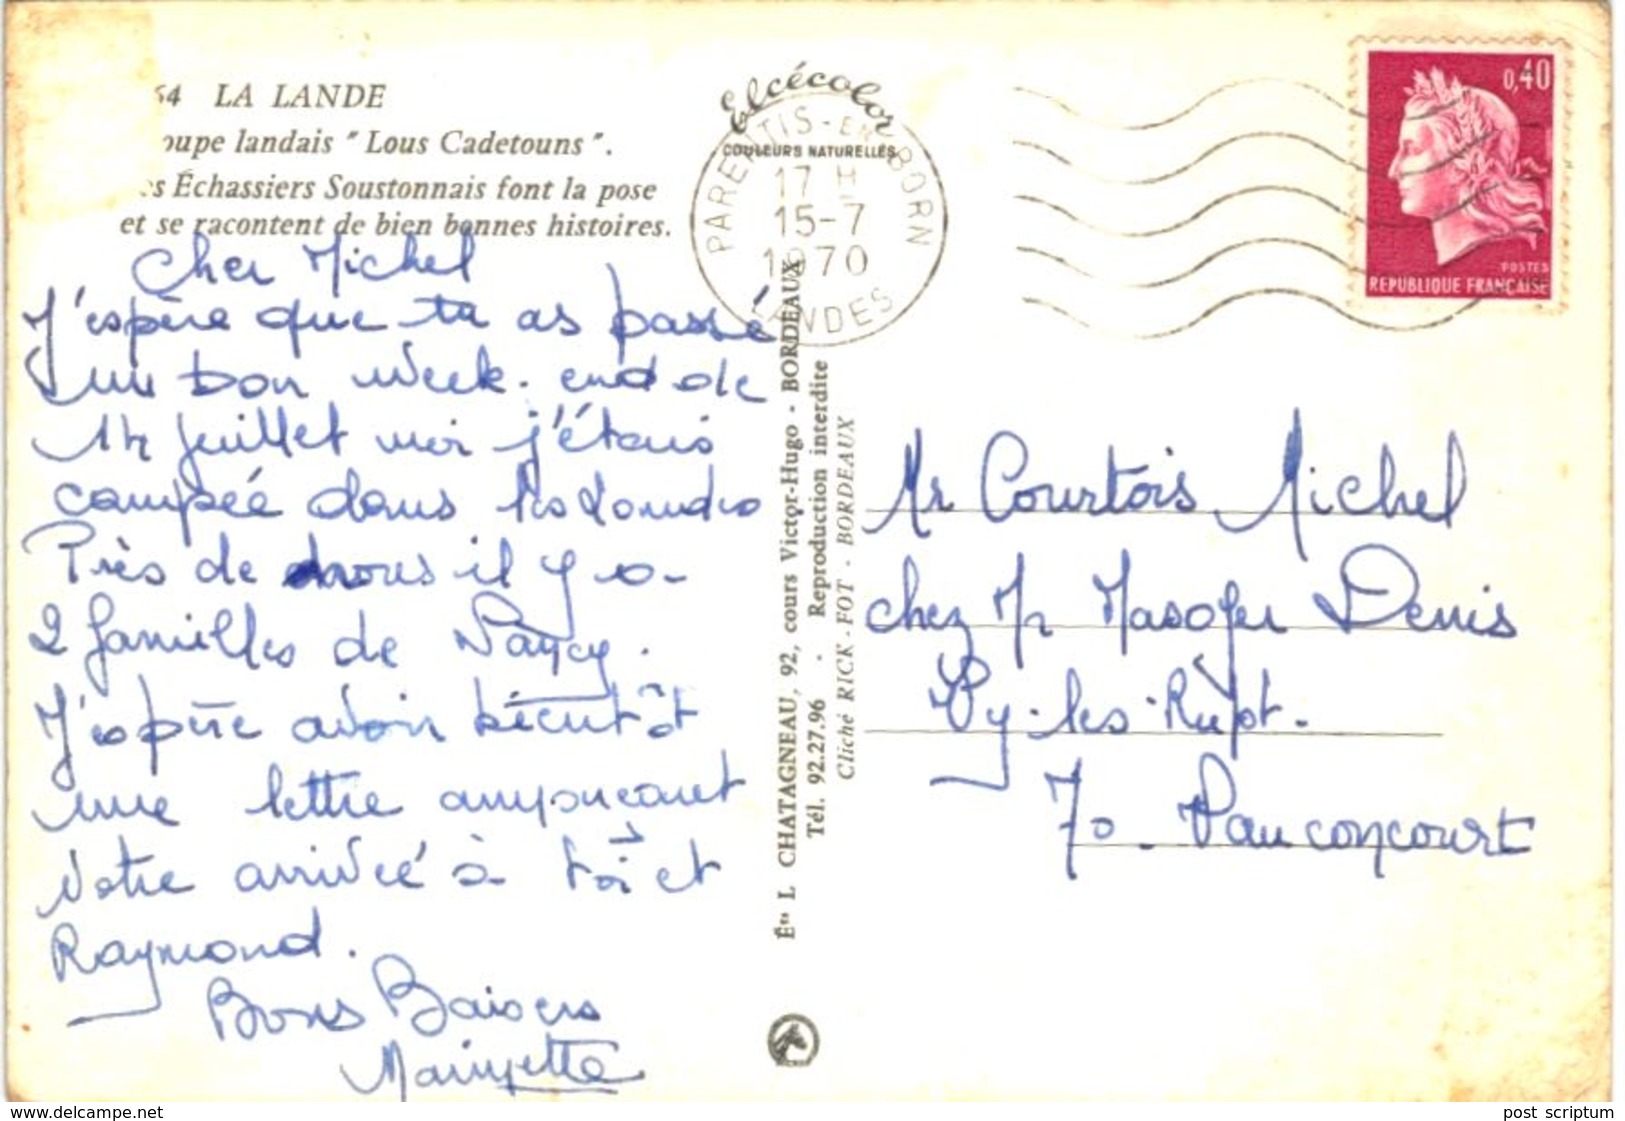 54 LA LANDE
oupe landais " Lous Cadetouns ".
s Échassiers Soustonnais font la pose
et se racontent de bien bonnes histoires.
Cher Michel
J'espère que tu as passé
un bon week-end de
14 Juillet moi j'étais
campée dans les Landes
Près de nous il y a
2 familles de Nancy.
J'espère avoir bientôt
une lettre annonçant
votre arrivée à toi et
Raymond.
Bons Baisers
Elcécolor
COULEURS NATURELLES
PARENTIS-EN-BORN
17 H
15-7
1970
LANDES
0,40
POSTES
REPUBLIQUE FRANÇAISE
Éts L. CHATAGNEAU, 92, cours Victor-Hugo - BORDEAUX
Tél. 92.27.96 - Reproduction interdite
Cliché RICK-FOT - BORDEAUX
Mr Courtois Michel
chez Mr Denis
70 - Vauconcourt
www.delcampe.net
post scriptum